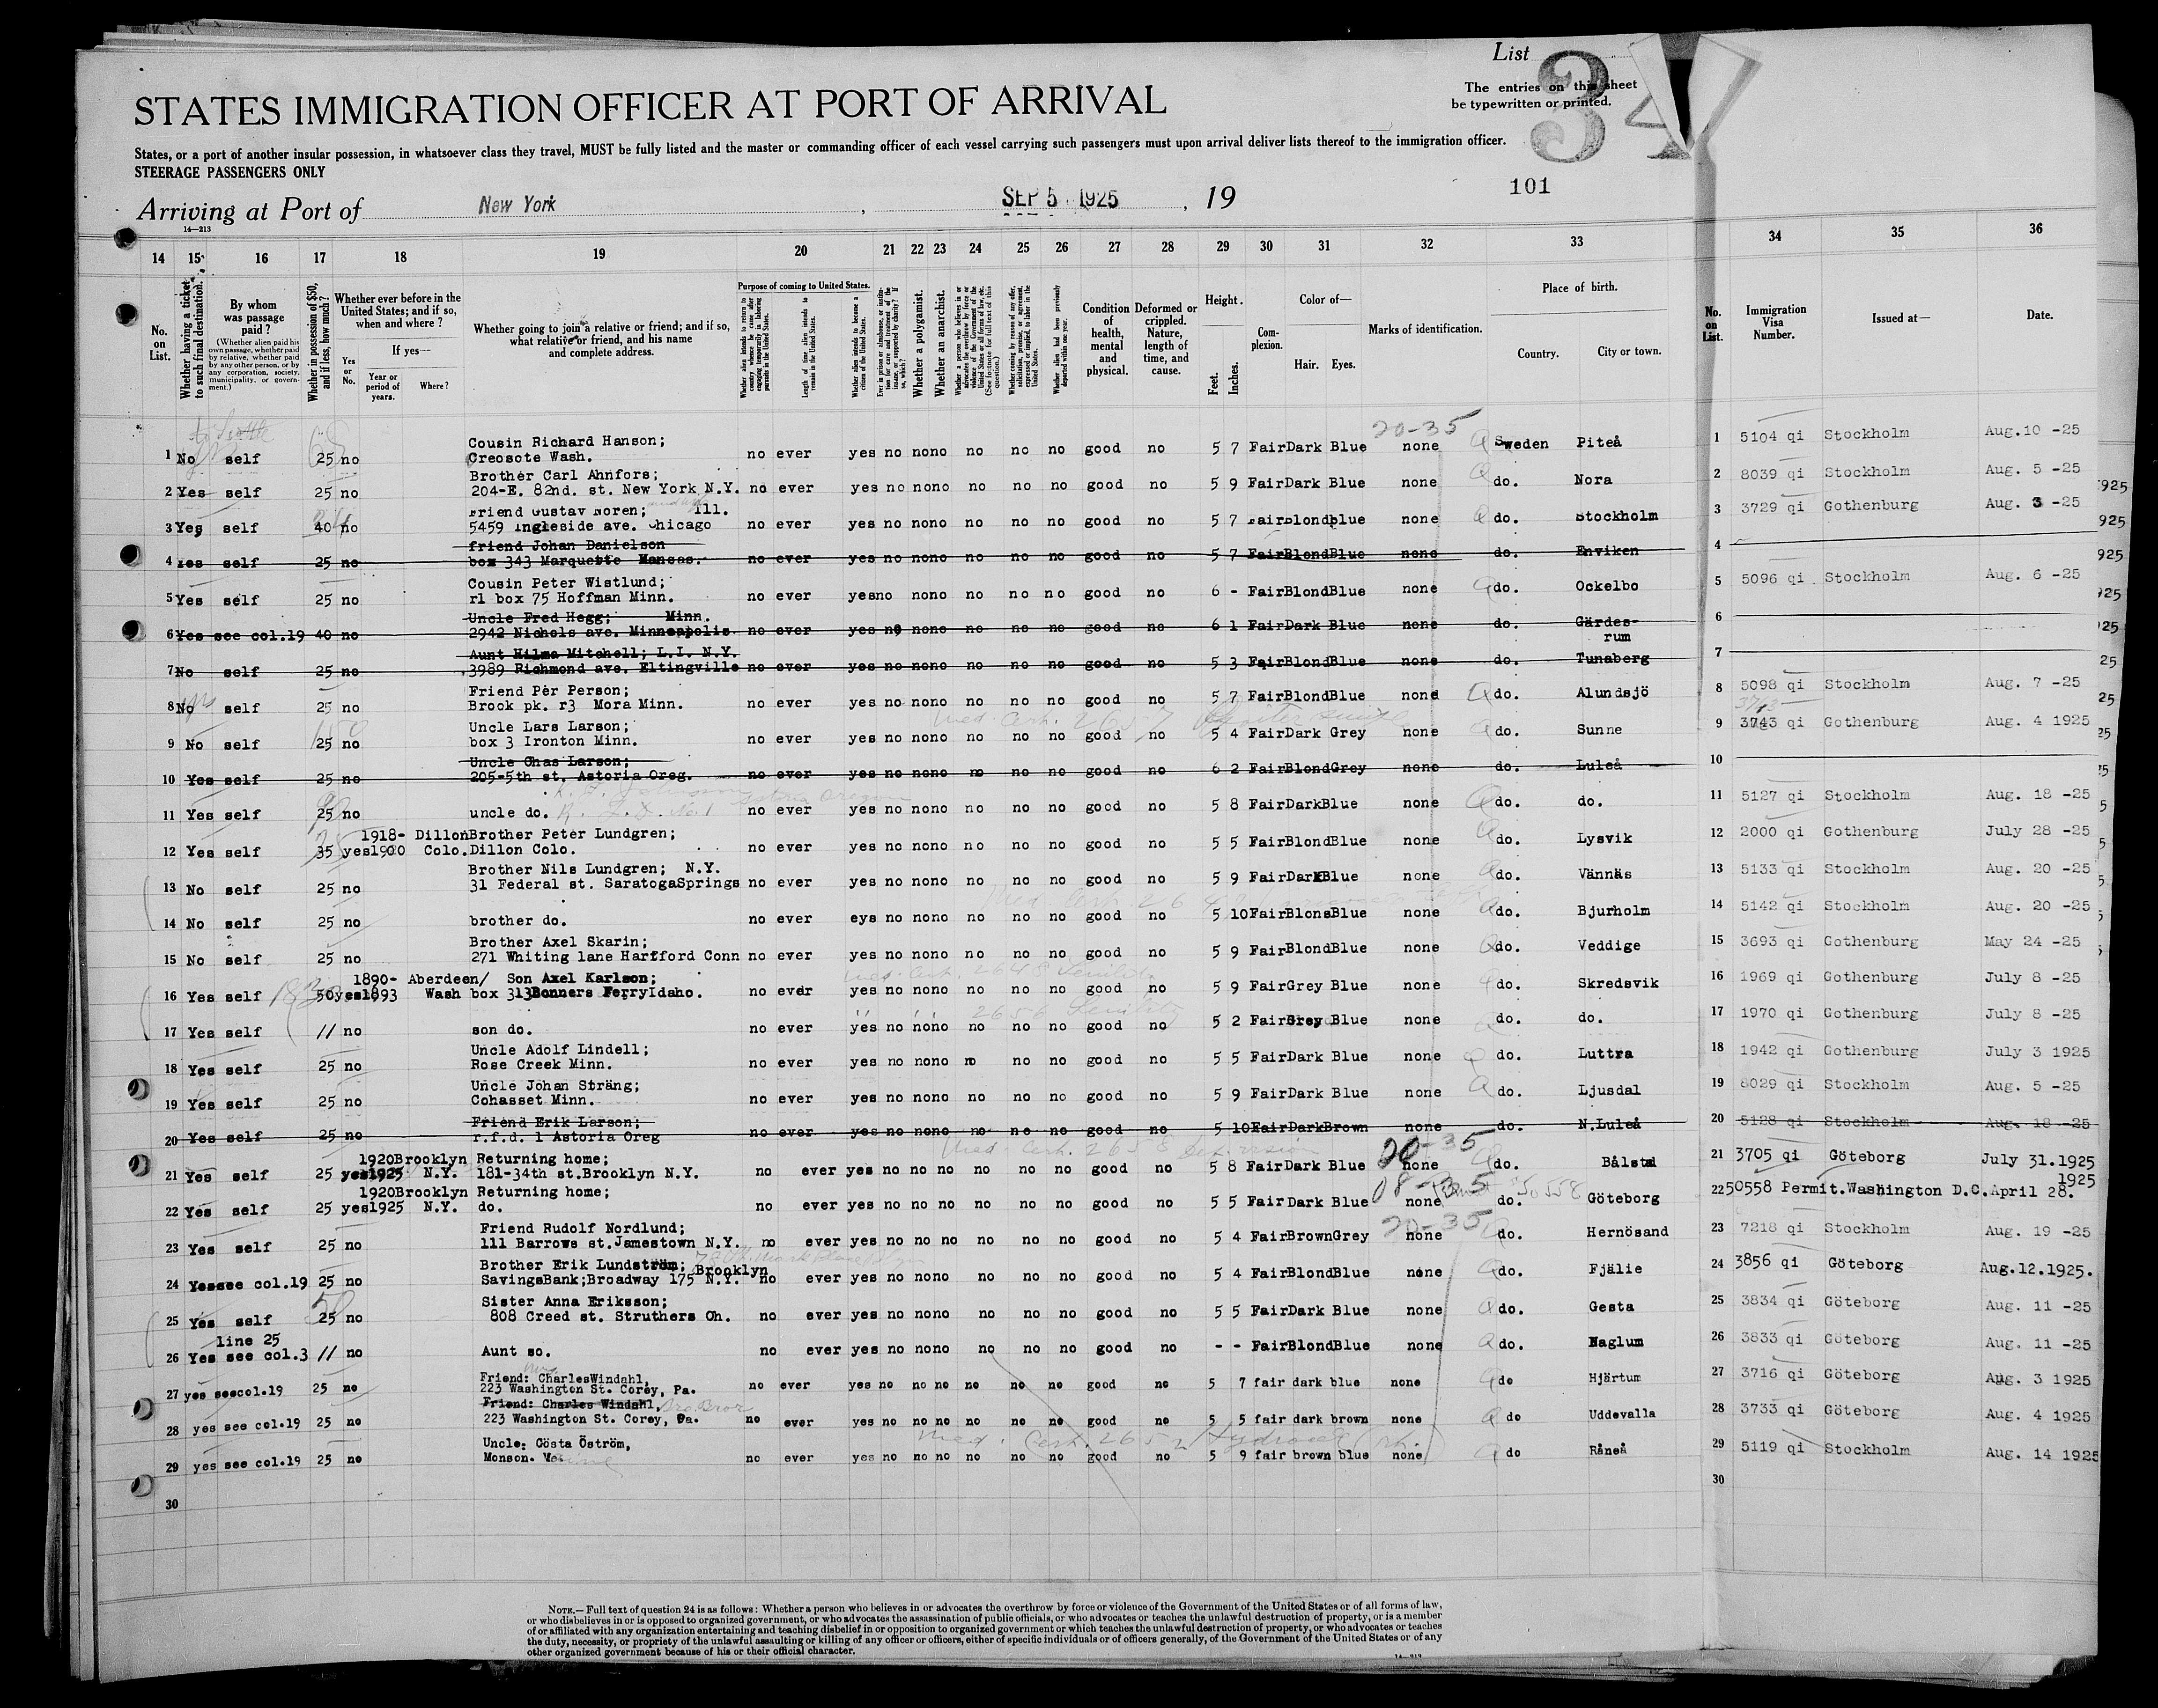 List
34
The entries on this sheet
be typewritten or printed.
STATES IMMIGRATION OFFICER AT PORT OF ARRIVAL
States, or a port of another insular possession, in whatsoever class they travel, MUST be fully listed and the master or commanding officer of each vessel carrying such passengers must upon arrival deliver lists thereof to the immigration officer.
STEERAGE PASSENGERS ONLY
101
Arriving at Port of New York , SEP 5 1925 , 19
14—213
14 15 16 17 18 19 20 21 22 23 24 25 26 27 28 29 30 31 32 33 34 35 36
No. on List.
Whether having a ticket to such final destination.
By whom was passage paid?
(Whether alien paid his own passage, whether paid by relative, whether paid by any other person, or by any corporation, society, municipality, or government.)
Whether in possession of $50, and if less, how much?
Whether ever before in the United States; and if so, when and where?
Yes or No.
If yes—
Year or period of years.
Where?
Whether going to join a relative or friend; and if so, what relative or friend, and his name and complete address.
Purpose of coming to United States.
Whether alien intends to return to country whence he came after engaging temporarily in laboring pursuits in the United States.
Length of time alien intends to remain in the United States.
Whether alien intends to become a citizen of the United States.
Whether a polygamist.
Whether an anarchist.
Whether alien had been previously deported within one year.
Condition of health, mental and physical.
Deformed or crippled. Nature, length of time, and cause.
Height.
Feet.
Inches.
Complexion.
Color of—
Hair. Eyes.
Marks of identification.
Place of birth.
Country. City or town.
No. on List.
Immigration Visa Number.
Issued at—
Date.
20-35
Cousin Richard Hanson;
1 No self 25 no Creosote Wash. no ever yes no nono no no no good no 5 7 FairDark Blue none Sweden Piteå 1 5104 qi Stockholm Aug.10 -25
Brother Carl Ahnfors;
2 Yes self 25 no 204-E. 82nd. st. New York N.Y. no ever yes no nono no no no good no 5 9 FairDark Blue none do. Nora 2 8039 qi Stockholm Aug. 5 -25
Friend Gustav Noren; Ill.
3 Yes self 40 no 5459 Ingleside ave. Chicago no ever yes no nono no no no good no 5 7 FairBlondBlue none do. Stockholm 3 3729 qi Gothenburg Aug. 3 -25
friend Johan Danielson
4 Yes self 25 no box 343 Marquette Kansas. no ever yes no nono no no no good no 5 7 FairBlondBlue none do. Enviken 4
Cousin Peter Wistlund;
5 Yes self 25 no rl box 75 Hoffman Minn. no ever yesno nono no no no good no 6 - FairBlondBlue none do. Ockelbo 5 5096 qi Stockholm Aug. 6 -25
Uncle Fred Hegg; Minn.
6 Yes see col.19 40 no 2942 Nichols ave. Minneapolis no ever yes no nono no no no good no 6 1 FairDark Blue none do. Gärdes-
rum 6
Aunt Hilma Mitchell; L.I. N.Y.
7 No self 25 no 3989 Richmond ave. Eltingville no ever yes no nono no no no good no 5 3 FairBlondBlue none do. Tunaberg 7
Friend Pèr Person;
8 No self 25 no Brook pk. r3 Mora Minn. no ever yes no nono no no no good no 5 7 FairBlondBlue none do. Alundsjö 8 5098 qi Stockholm Aug. 7 -25
Uncle Lars Larson;
9 No self 25 no box 3 Ironton Minn. no ever yes no nono no no no good no 5 4 FairDark Grey none do. Sunne 9 3743 qi Gothenburg Aug. 4 1925
Uncle Chas Larson;
10 Yes self 25 no 205-5th st. Astoria Oreg. no ever yes no nono no no no good no 6 2 FairBlondGrey none do. Luleå 10
11 Yes self 25 no uncle do. R.F.D. No.1 no ever yes no nono no no no good no 5 8 FairDarkBlue none do. do. 11 5127 qi Stockholm Aug. 18 -25
1918- Dillon Brother Peter Lundgren;
12 Yes self 35 yes1920 Colo. Dillon Colo. no ever yes no nono no no no good no 5 5 FairBlondBlue none do. Lysvik 12 2000 qi Gothenburg July 28 -25
Brother Nils Lundgren; N.Y.
13 No self 25 no 31 Federal st. SaratogaSprings no ever yes no nono no no no good no 5 9 FairDarkBlue none do. Vännäs 13 5133 qi Stockholm Aug. 20 -25
14 No self 25 no brother do. no ever eys no nono no no no good no 5 10 FairBlonsBlue none do. Bjurholm 14 5142 qi Stockholm Aug. 20 -25
Brother Axel Skarin;
15 No self 25 no 271 Whiting lane Hartford Conn no ever yes no nono no no no good no 5 9 FairBlondBlue none do. Veddige 15 3693 qi Gothenburg May 24 -25
1890- Aberdeen/ Son Axel Karlson;
16 Yes self 50yes1893 Wash box 313Bonners FerryIdaho. no ever yes no nono no no no good no 5 9 FairGrey Blue none do. Skredsvik 16 1969 qi Gothenburg July 8 -25
17 Yes self // no son do. no ever yes no nono no no no good no 5 2 FairGrey Blue none do. do. 17 1970 qi Gothenburg July 8 -25
Uncle Adolf Lindell;
18 Yes self 25 no Rose Creek Minn. no ever yes no nono no no no good no 5 5 FairDark Blue none do. Luttra 18 1942 qi Gothenburg July 3 1925
Uncle Johan Sträng;
19 Yes self 25 no Cohasset Minn. no ever yes no nono no no no good no 5 9 FairDark Blue none do. Ljusdal 19 8029 qi Stockholm Aug. 5 -25
Friend Erik Larson;
20 Yes self 25 no r.f.d. 1 Astoria Oreg no ever yes no nono no no no good no 5 10FairDarkBrown none do. N.Luleå 20 5128 qi Stockholm Aug. 18 -25
1920Brooklyn Returning home; 20-35
21 Yes self 25 yes1925 N.Y. 181-34th st.Brooklyn N.Y. no ever yes no no no no no no good no 5 8 FairDark Blue none do. Bålstad 21 3705 qi Göteborg July 31.1925
1920Brooklyn Returning home; 1925
22 Yes self 25 yes1925 N.Y. do. no ever yes no no no no no no good no 5 5 FairDark Blue none do. Göteborg 22 50558 Permit.Washington D.C.April 28.
Friend Rudolf Nordlund; 20-35
23 Yes self 25 no 111 Barrows st.Jamestown N.Y. no ever yes no no no no no no good no 5 4 FairBrownGrey none do. Hernösand 23 7218 qi Stockholm Aug. 19 -25
Brother Erik Lundström; Brooklyn
24 Yessee col.19 25 no SavingsBank;Broadway 175 N.Y. no ever yes no nono no no no good no 5 4 FairBlondBlue none do. Fjälie 24 3856 qi Göteborg Aug.12.1925.
Sister Anna Eriksson;
25 Yes self 25 no 808 Creed st. Struthers Oh. no ever yes no nono no no no good no 5 5 FairDark Blue none do. Gesta 25 3834 qi Göteborg Aug. 11 -25
line 25
26 Yes see col.3 // no Aunt so. no ever yes no nono no no no good no - - FairBlondBlue none do. Naglum 26 3833 qi Göteborg Aug. 11 -25
Friend: CharlesWindahl,
27 yes seecol.19 25 no 223 Washington St. Corey, Pa. no ever yes no no no no no no good no 5 7 fair dark blue none do Hjärtum 27 3716 qi Göteborg Aug. 3 1925
Friend: Charles Windahl,
28 yes see col.19 25 no 223 Washington St. Corey, Pa. no ever yes no no no no no no good no 5 5 fair dark brown none do Uddevalla 28 3733 qi Göteborg Aug. 4 1925
Uncle: Gösta Öström,
29 yes see col.19 25 no Monson. Me. no ever yes no no no no no no good no 5 9 fair brown blue none do Råneå 29 5119 qi Stockholm Aug. 14 1925
30 30
NOTE.—Full text of question 24 is as follows: Whether a person who believes in or advocates the overthrow by force or violence of the Government of the United States or of all forms of law,
or who disbelieves in or is opposed to organized government, or who advocates the assassination of public officials, or who advocates or teaches the unlawful destruction of property, or is a member
of or affiliated with any organization entertaining and teaching disbelief in or opposition to organized government or which teaches the unlawful destruction of property, or who advocates or teaches
the duty, necessity, or propriety of the unlawful assaulting or killing of any officer or officers, either of specific individuals or of officers generally, of the Government of the United States or of any
other organized government because of his or their official character.
14—213